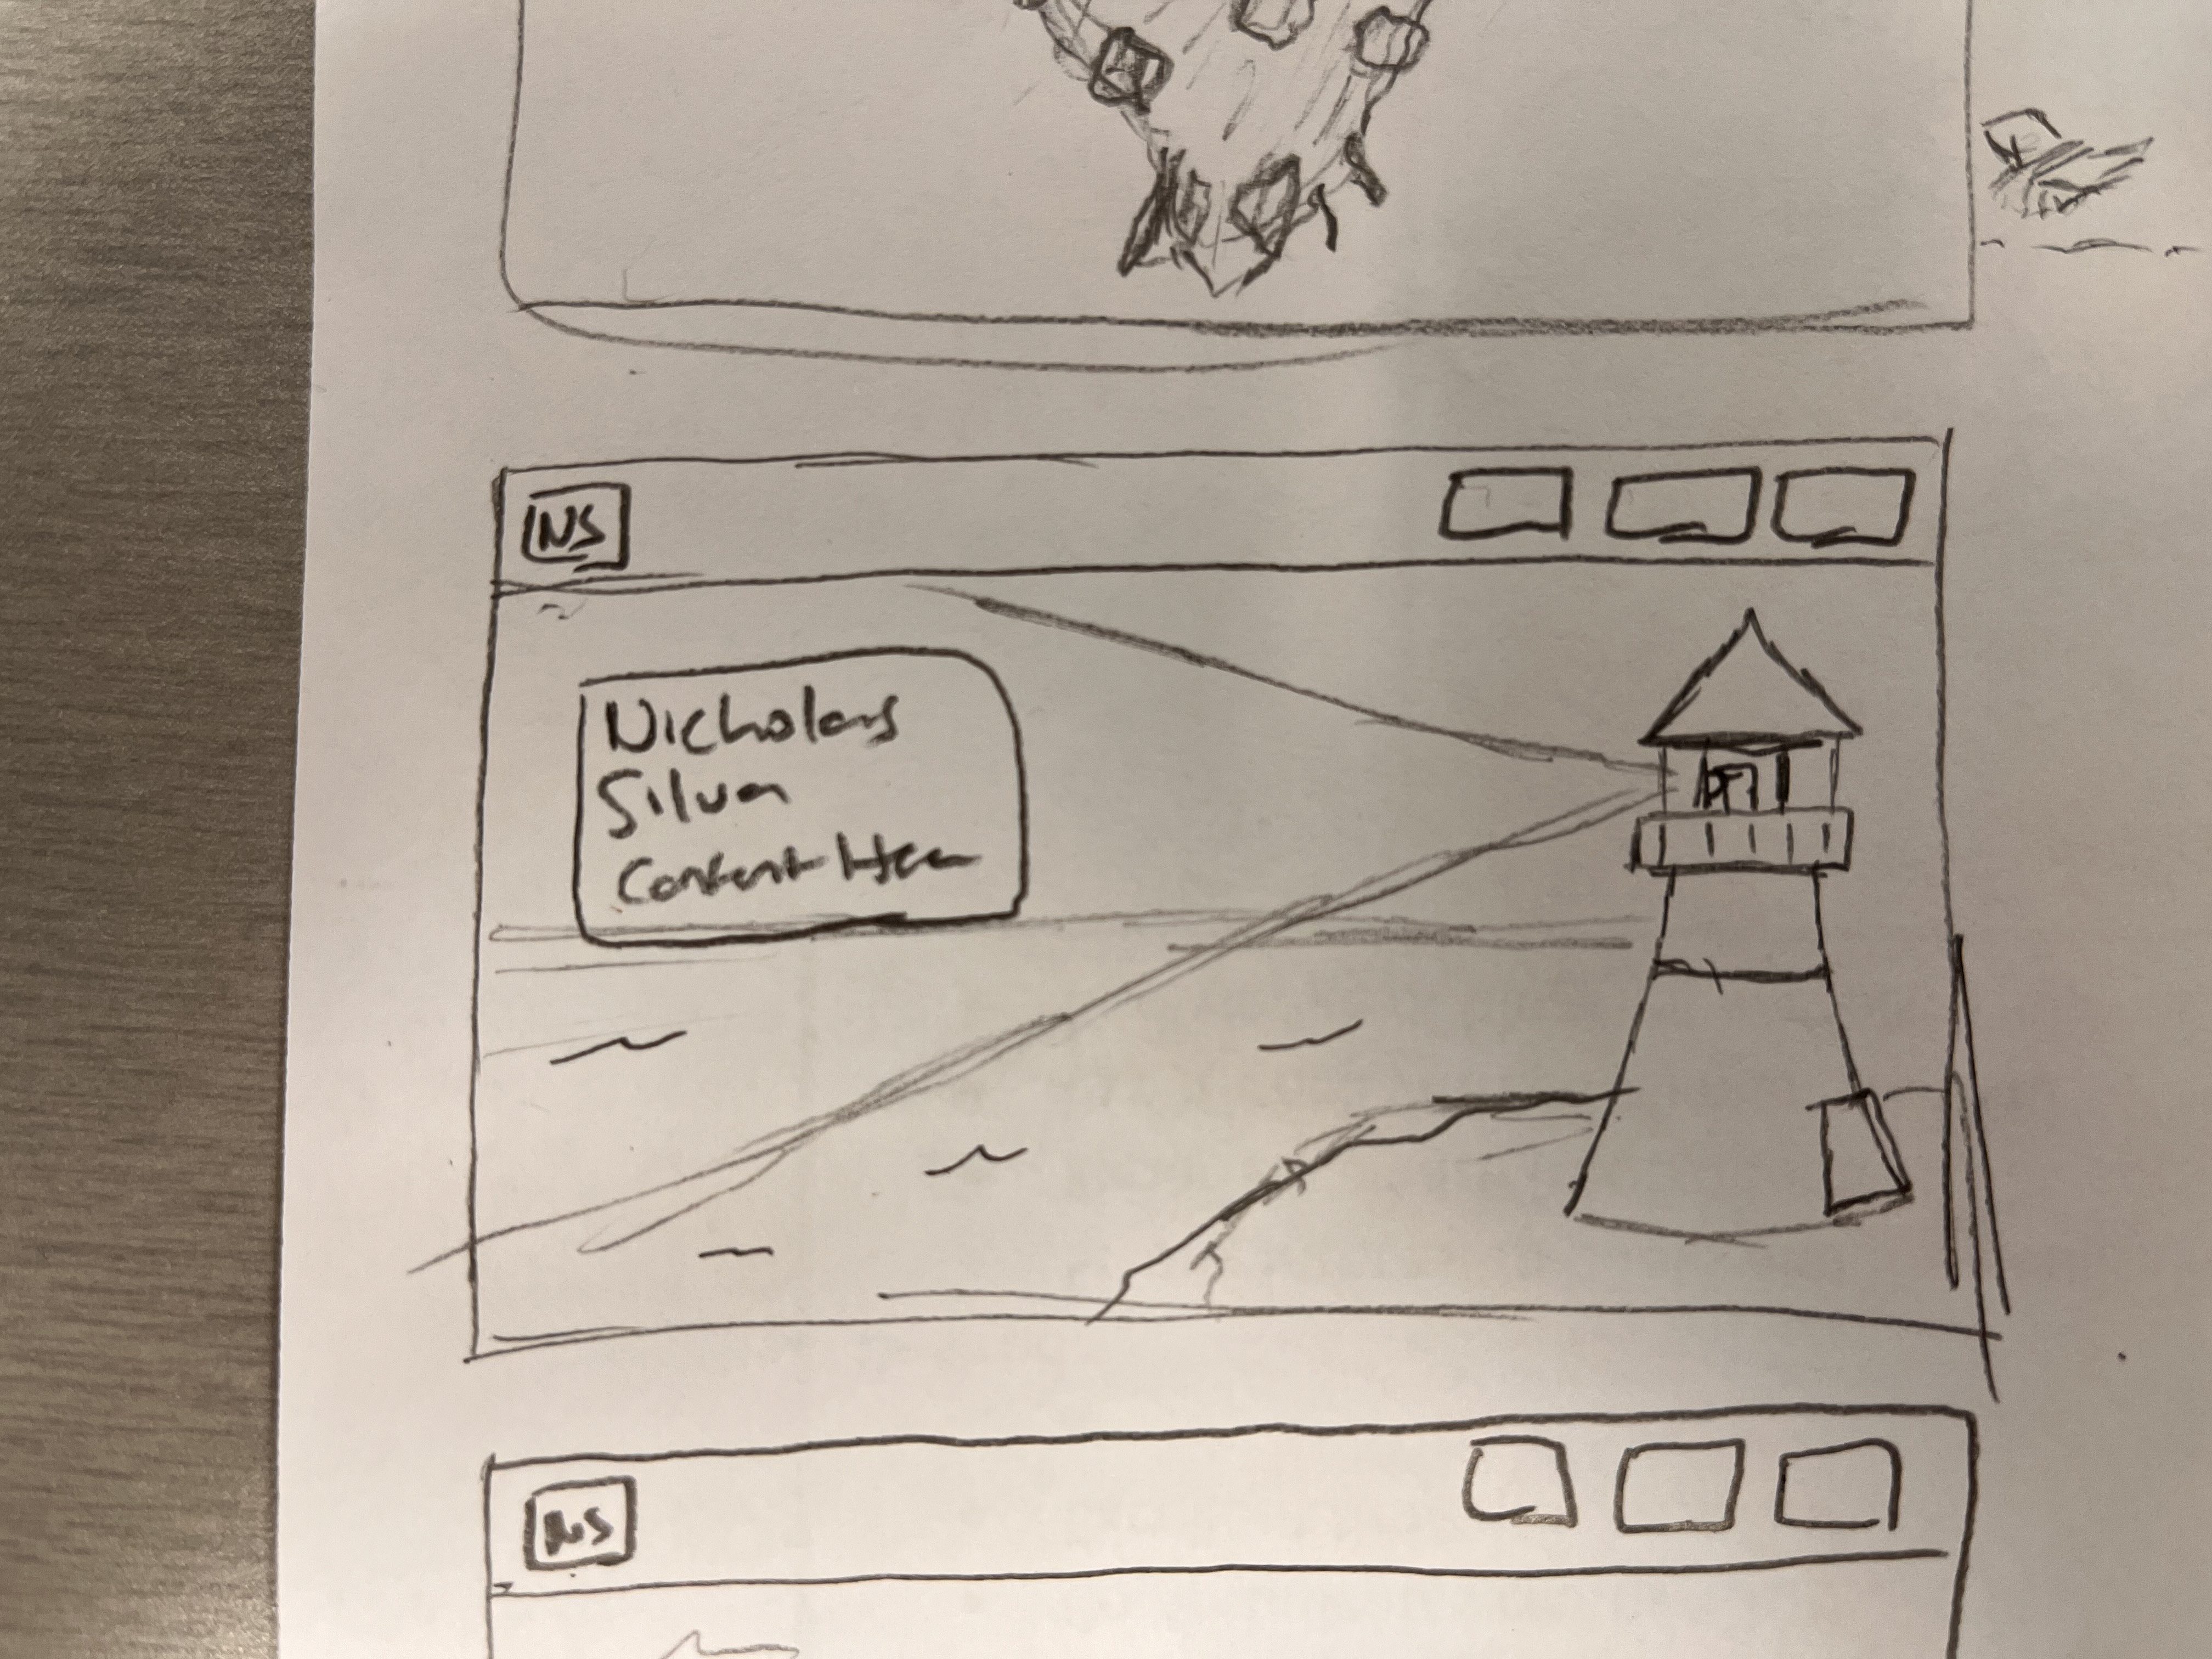 NS
Nicholas
Silva
Content Here
NS